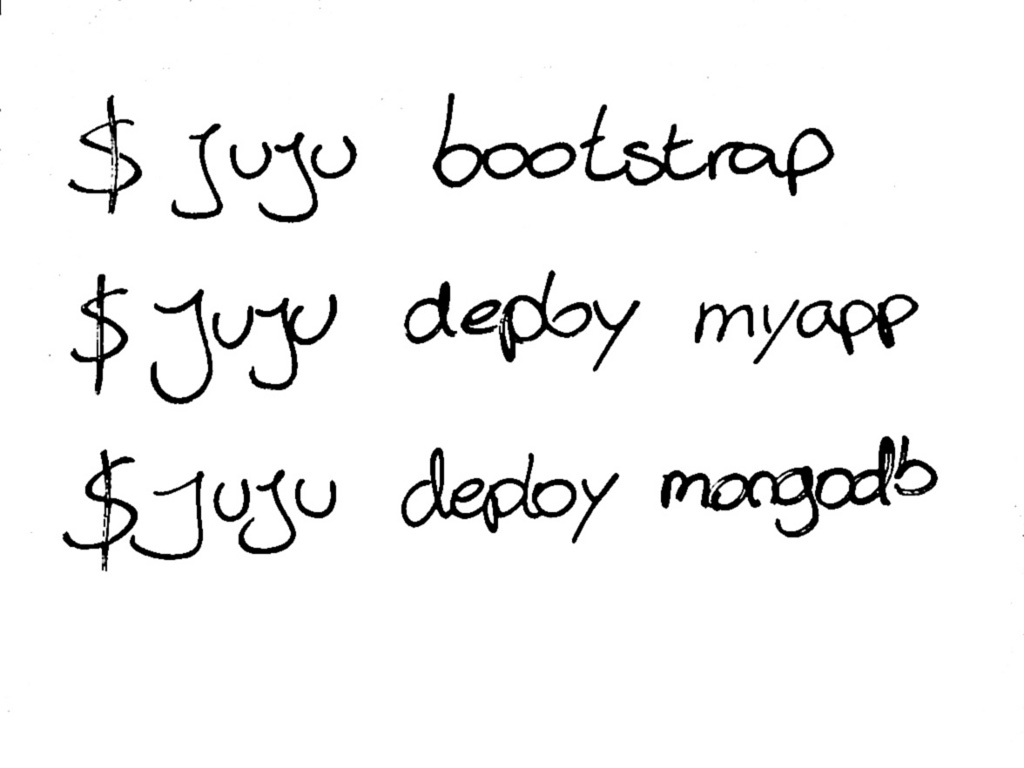 $ juju bootstrap
$ juju deploy myapp
$ juju deploy mongodb